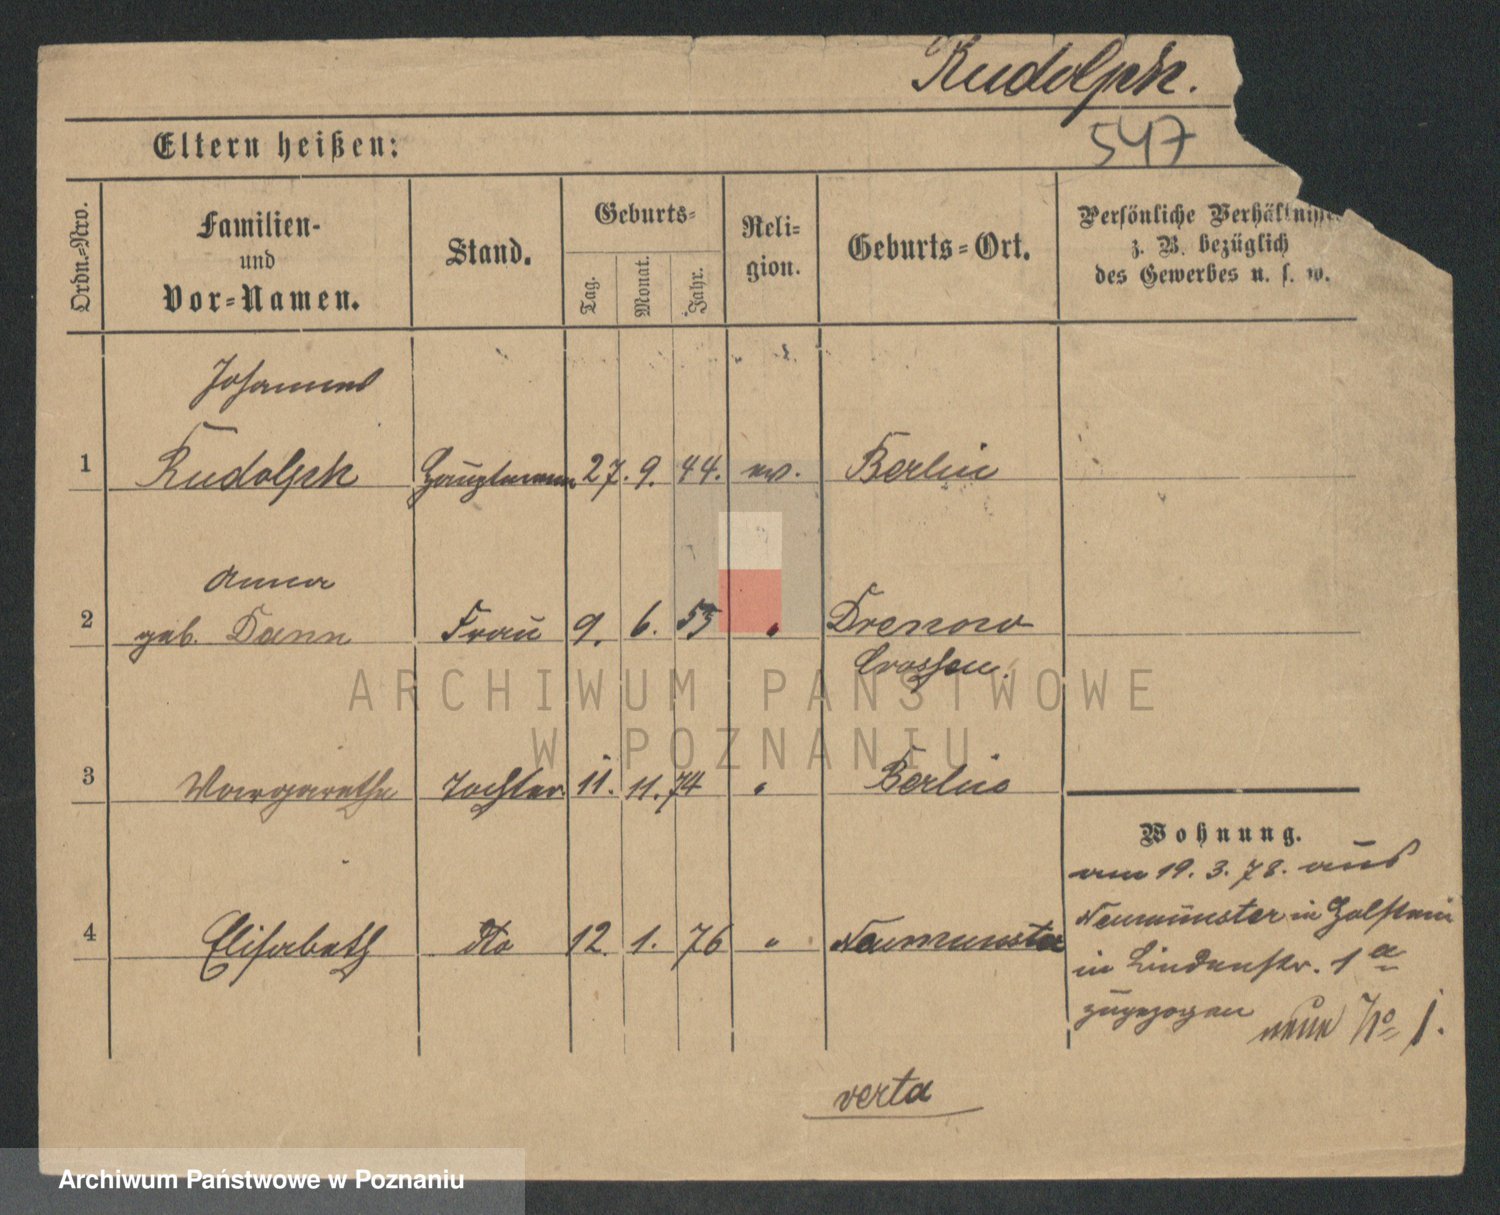 Rudolph.
547
Eltern heißen:
Ordn.-Nro.
Familien-
und
Vor-Namen.
Stand.
Geburts-
Tag.
Monat.
Jahr.
Reli-
gion.
Geburts-Ort.
Persönliche Verhältnisse
z. B. bezüglich
des Gewerbes u. s. w.
Johannes
1 Rudolph Hauptmann 27. 9. 44. ev. Berlin
Anna
2 geb. Dann Frau 9. 6. 53 " Drenow
Crossen.
3 Margarethe Tochter 11. 11. 74 " Berlin
Wohnung.
am 19. 3. 78. aus
Neumünster in Holstein
4 Elisabeth dto 12. 1. 76 " Neumünster
in Lindenstr. 1 a
zugezogen neue No 1.
verta
ARCHIWUM PAŃSTWOWE
W POZNANIU
Archiwum Państwowe w Poznaniu